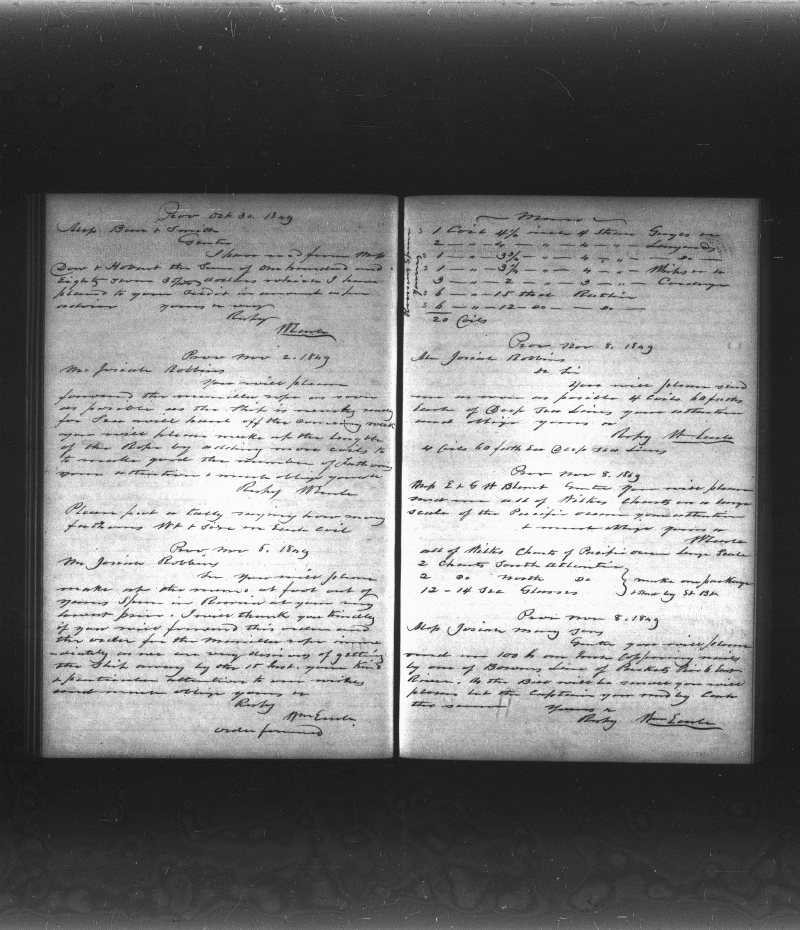 Prov Oct 30. 1849
Mess Burr & Smith
Gents
I have recd from Mess
Dow & Hobart the Sum of One hundred and
Eighty Seven dollars which I have
placed to your Credit in account as per
advice yours &c
Resfy
WEarle
Prov Nov 2. 1849
Mr Josiah Robbins
You will please
forward the manilla rope as soon
as possible as the Ship is nearly ready
for Sea will haul off the coming week
you will please make up the lengths
of the Rope by adding more coils to
to make good the number of Fathoms
your attention & much oblige yours &c
Resfy WEarle
Please put a tally saying how many
fathoms Wt & Size on Each Coil
Prov Nov 5. 1849
Mr Josiah Robbins
Sir You will please
make up the memo at foot out of
yarns Spun in Russia at your very
lowest price. I will thank you kindly
if you will forward this memo and
the order for the Manilla rope imme
diately as we are very desirous of getting
the Ship away by the 15 Inst. your kind
& particular attention to our wishes
and much oblige yours &c
Resfy
Wm Earle
order forward
Memo
1 Coil 4½ inch 4 Stran Guyes
2 " 4 " 4 " Lanyards
1 " 3¾ " 4 " Do
1 " 3¼ " 4 "
3 " 2 " 3 " Cordage
6 " 15 thd Ratlin
6 " 12 do do
20 Coils
Prov Nov 8. 1849
Mr Josiah Robbins
Dr Sir
You will please send
me as soon as possible 4 Coils 60 faths
each of Deep Sea Lines your attention
and oblige yours &c
Resfy Wm Earle
4 Coils 60 fath Ea Deep Sea Lines
Prov Nov 8. 1849
Mess E & G W Blunt Gents You will please
send me all of Wilkes Charts on a large
scale of the Pacific ocean your attention
& much oblige yours &c
WEarle
all of Wilkes Charts of Pacific ocean Large Scale
2 Charts South Atlantic
2 Do North Do make one package
12 - 14 Sec Glasses & Send by St Bt
Prov Nov 8. 1849
Mess Josiah Macy Sons
Gents you will please
send me 100 lb one Inch Copper nails
by one of Bowens Line of Packets
River. As the Bill will be small you will
please let the Captain you send by Collect
the same Yours &
Resfy Wm Earle